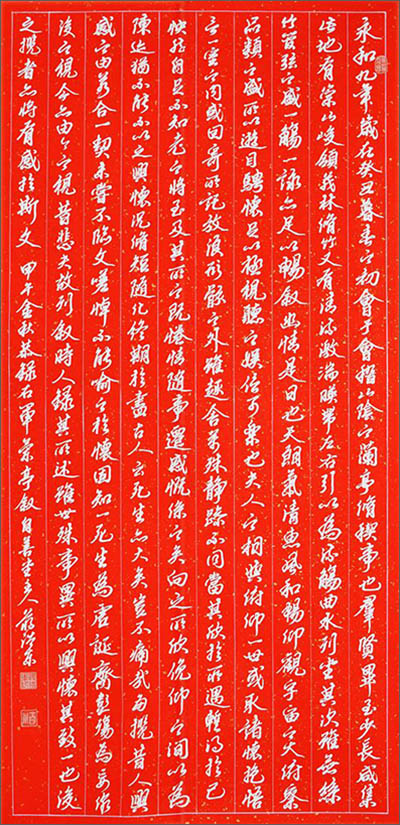 永和九年歲在癸丑暮春之初會于會稽山陰之蘭亭脩禊事也羣賢畢至少長咸集
此地有崇山峻領茂林脩竹又有清流激湍暎帶左右引以為流觴曲水列坐其次雖無絲
竹管弦之盛一觴一詠亦足以暢敘幽情是日也天朗氣清惠風和暢仰觀宇宙之大俯察
品類之盛所以遊目騁懷足以極視聽之娛信可樂也夫人之相與俯仰一世或取諸懷抱悟
言一室之內或因寄所託放浪形骸之外雖趣舍萬殊靜躁不同當其欣於所遇暫得於己
快然自足不知老之將至及其所之既惓情隨事遷感慨係之矣向之所欣俛仰之間以為
陳迹猶不能不以之興懷況脩短隨化終期於盡古人云死生亦大矣豈不痛哉每攬昔人興
感之由若合一契未嘗不臨文嗟悼不能喻之於懷固知一死生為虛誕齊彭殤為妄作
後之視今亦由今之視昔悲夫故列敘時人錄其所述雖世殊事異所以興懷其致一也後
之攬者亦將有感於斯文 甲午金秋恭錄右軍蘭亭敘自善堂主人